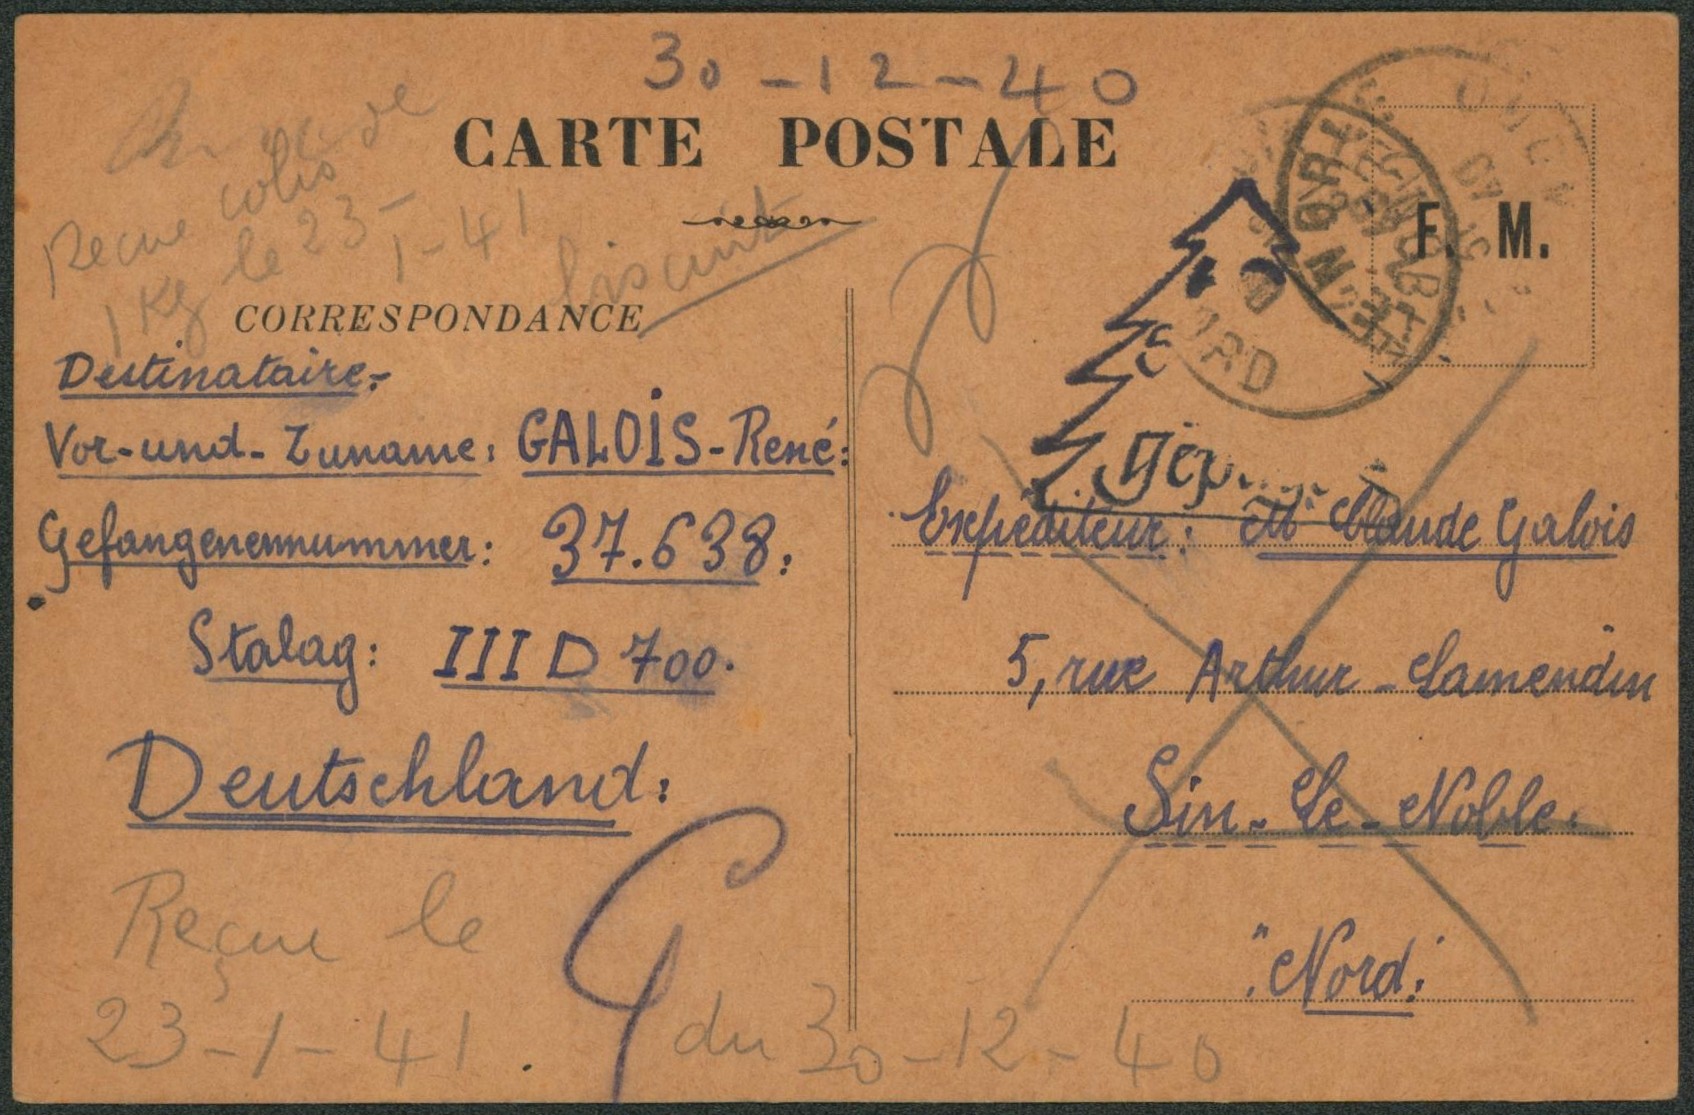 30-12-40
CARTE POSTALE
F. M.
Reçue colis de
1 Kg le 23-
1-41
biscuits
CORRESPONDANCE
Destinataire:
Vor-und-Zuname: GALOIS-René:
Gefangenennummer: 37.638:
Stalag: III D 700.
Deutschland:
Reçue le
23-1-41. du 30-12-40
NORD
Expéditeur: Mr Claude Galois
5, rue Arthur-Lamendin
Sin-Le-Noble.
"Nord: